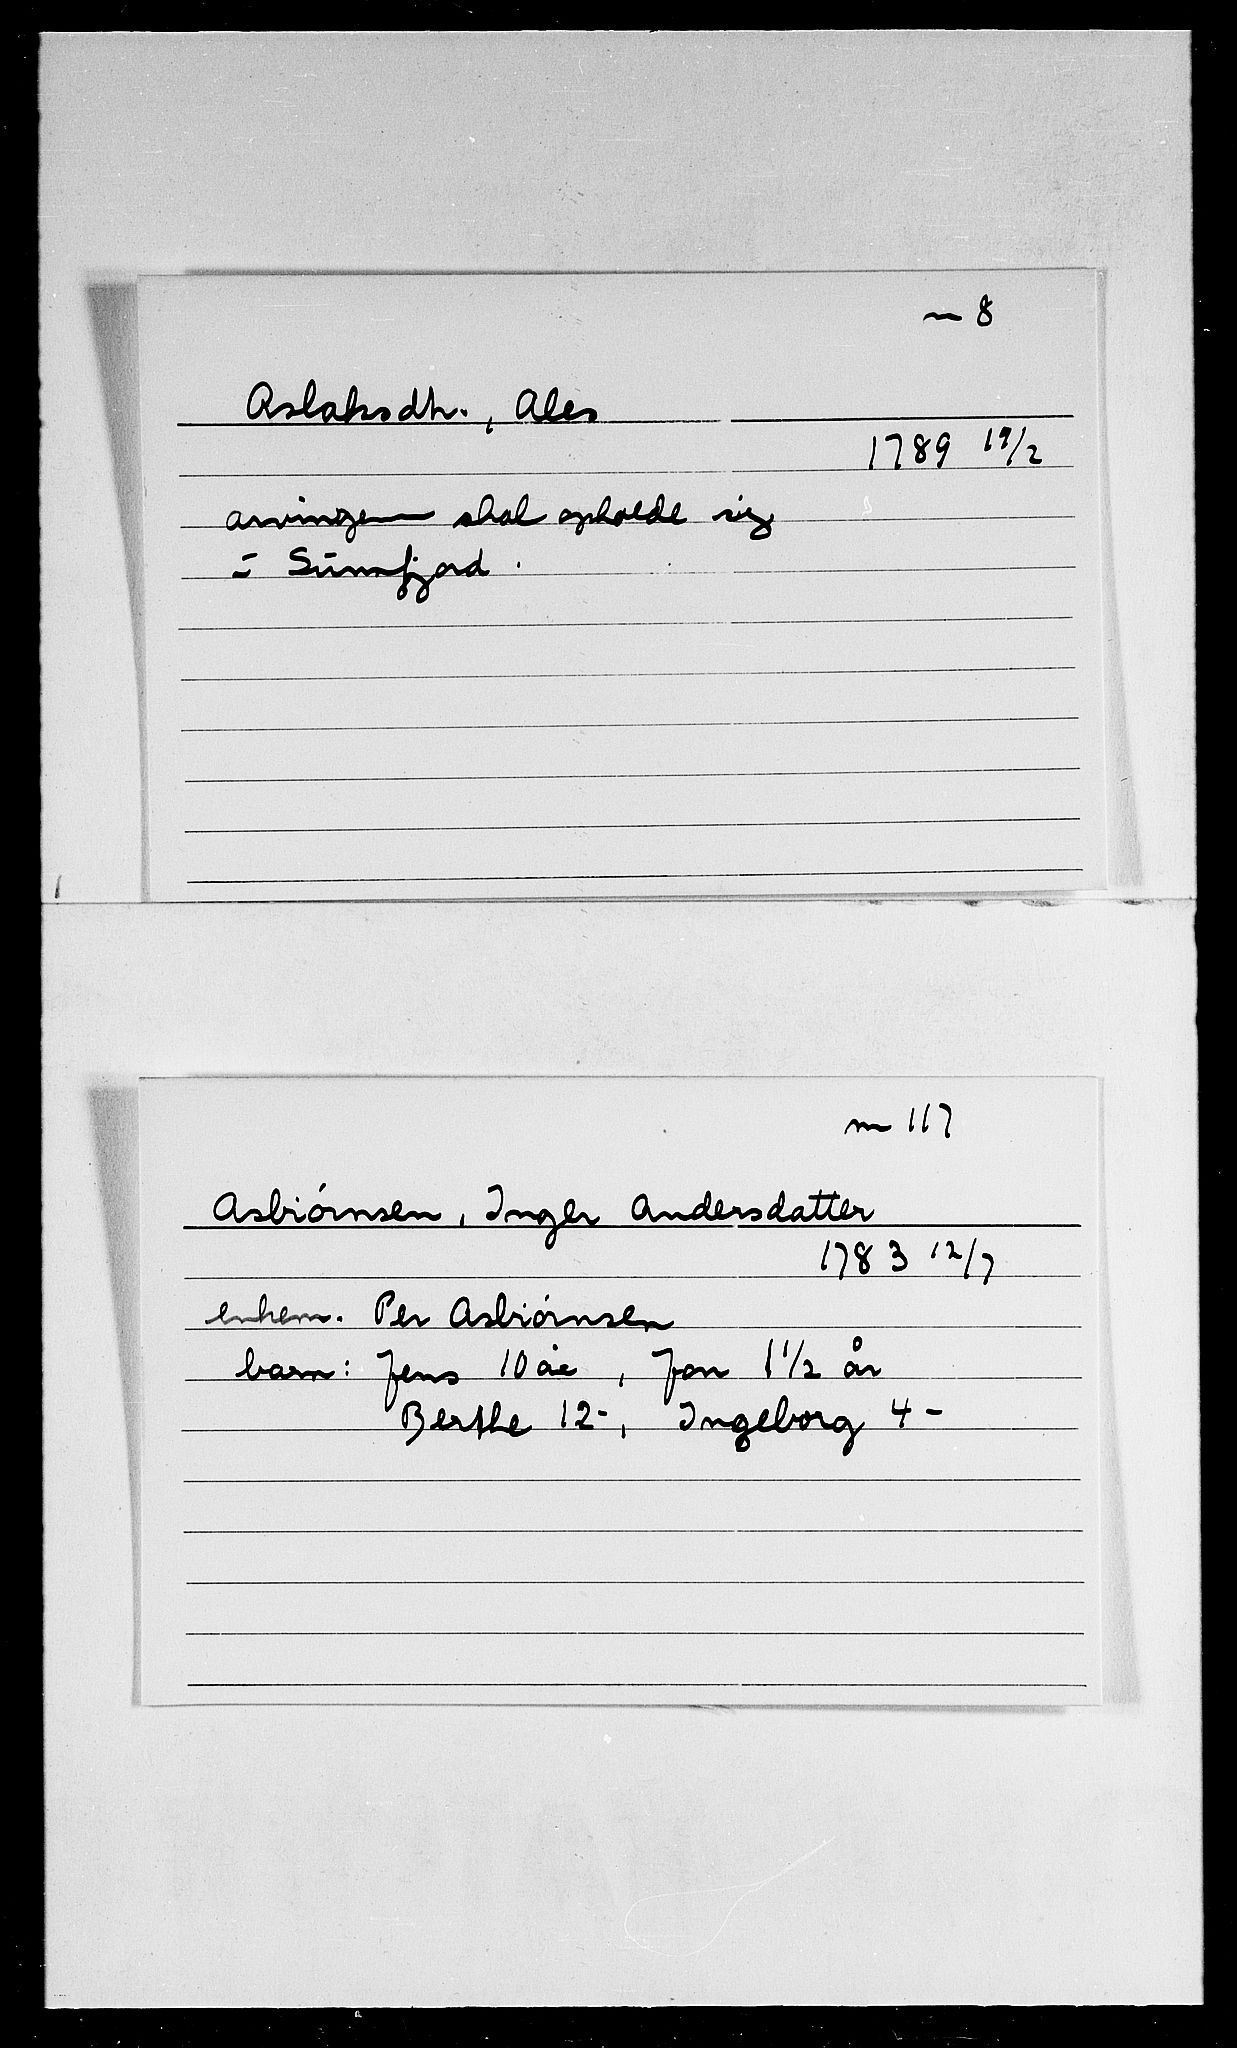 m 8
Aslaksdtr., Ales
1789 19/2
arvingen skal opholde sig
i Sunnfjord.
m 117
Asbiørnsen, Inger Andersdatter
1783 12/7
enkem. Per Asbiørnsen
barn: Jens 10 år, Jon 1 1/2 år
Berthe 12-, Ingeborg 4-